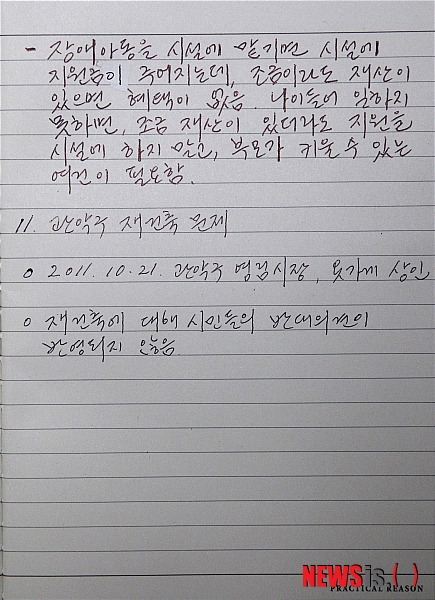 - 장애아동을 시설에 맡기면 시설에
지원금이 주어지는데, 조금이라도 재산이
있으면 혜택이 없음. 나이들어 일하지
못하면, 조금 재산이 있더라도 지원을
시설에 하지 말고, 부모가 키울 수 있는
여건이 필요함.
11. 관악구 재건축 문제
o 2011. 10. 21. 관악구 영림시장, 옷가게 상인
o 재건축에 대해 시민들의 반대의견이
반영되지 않음
NEWSis.( )
PRACTICAL REASON